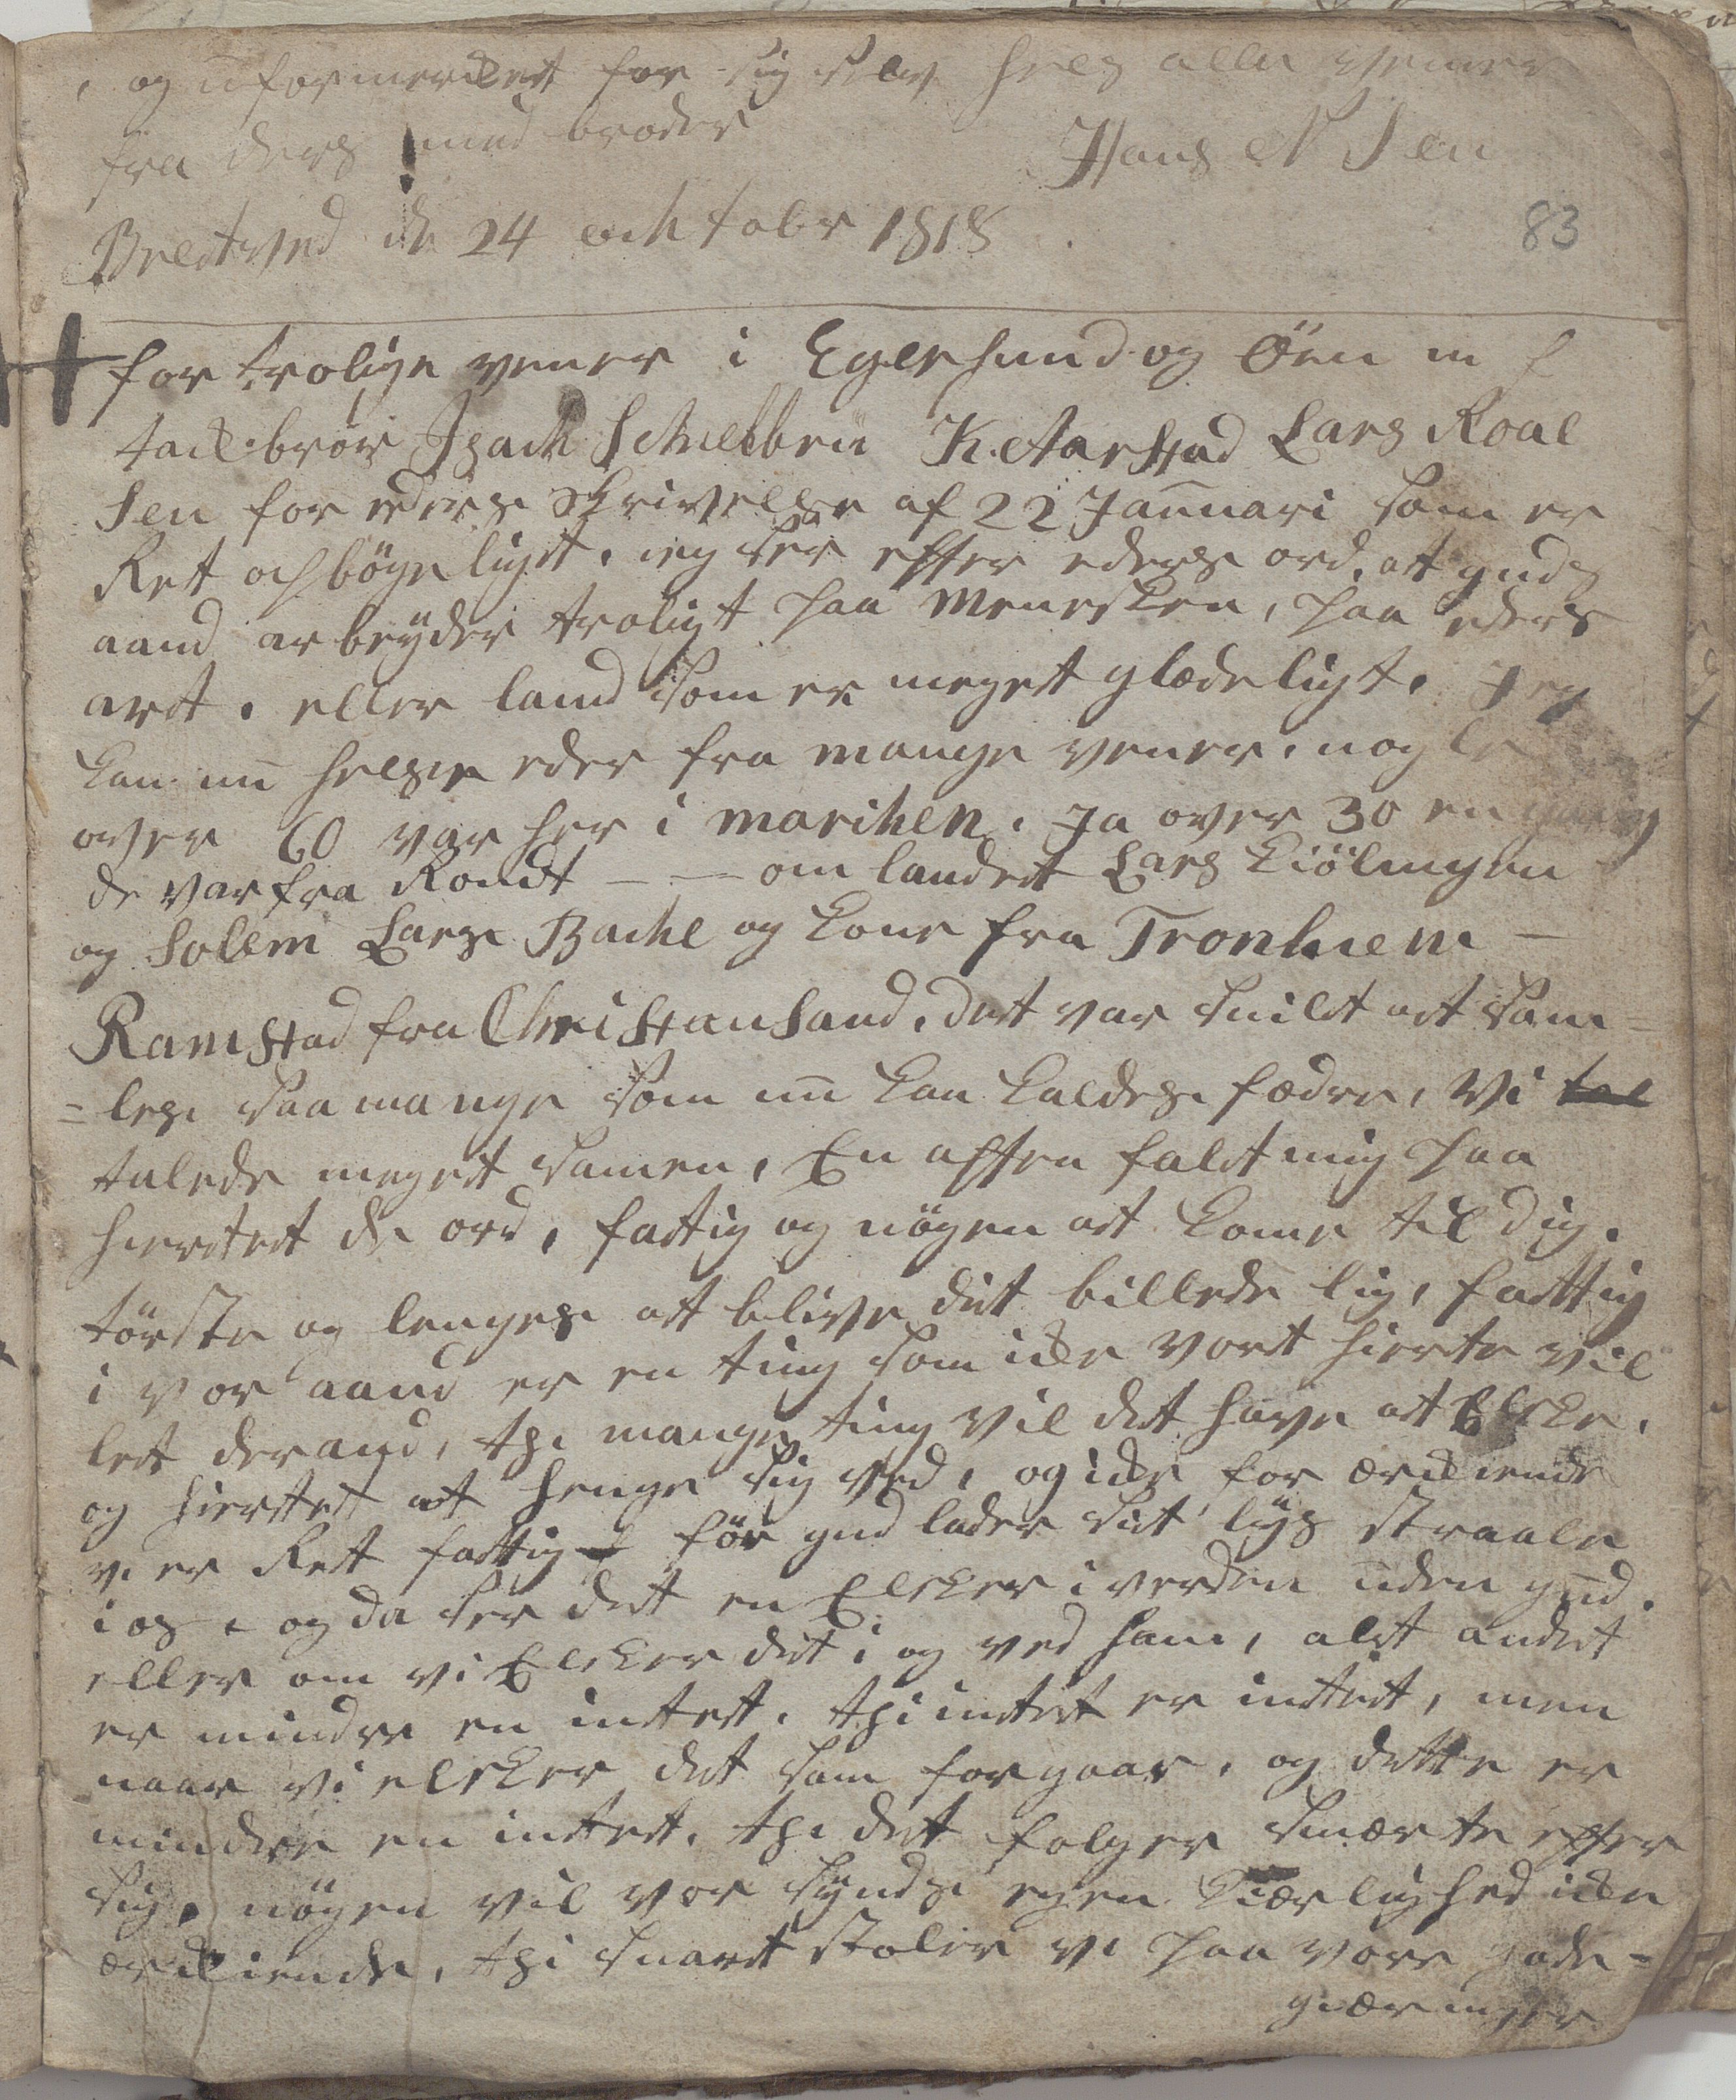 , og uformerket for sig selv hels alle vener
fra deres med broder
Hans N Sen
Bredtvед d 24 ochtobr 1818
83
fortrolige vener i Egersund og Öen
tak brör Isach Schiebbren K. Aarstad Lars Roal
sen for eders skrivelse af 22 Januari som er
Ret opbögeligt. ieg ser efter eders ord. at guds
aand arbeyder troligt paa Menesken, paa eders
art. eller land som er meget glædeligt. Jeg
kan nu helse eder fra mange vener. nogle
over 60 var her i marchen. Ja over 30 en gang
de var fra Rondt — — om landet Lars Kiölingen
og Solem Larse Bache og kone fra Tronhiem —
Ramstad fra Christansand. det var snilt at sam=
=les saa mange som nu kan kaldes fædre, Vi tal
talede meget samen, En aften falt mig paa
hiertet de ord, fattig og nögen at kome til dig.
törste og lenges at blive dit billede lig, fatttig
i vor aand er en ting som ike vort hierte vil
let derand, thi mange ting vil det have at Elske.
og hiertet at henge sig ved, og ike for ærkiende
vi er Ret fattig för gud lader sit lys straale
i os. og da ser det en Elsker i verden uden gud.
eller om vi Elsker dit i og ved ham, alt andet
er mindre en intet. thi intet er intet, men
naar vi elsker det som forgaar. og dette er
mindre en intet. thi det folger smærte efter
sig. nögen vil vor synds egen Kiærlighed ike
ærkiende, thi snart stoler vi paa vore gode=
giærninger